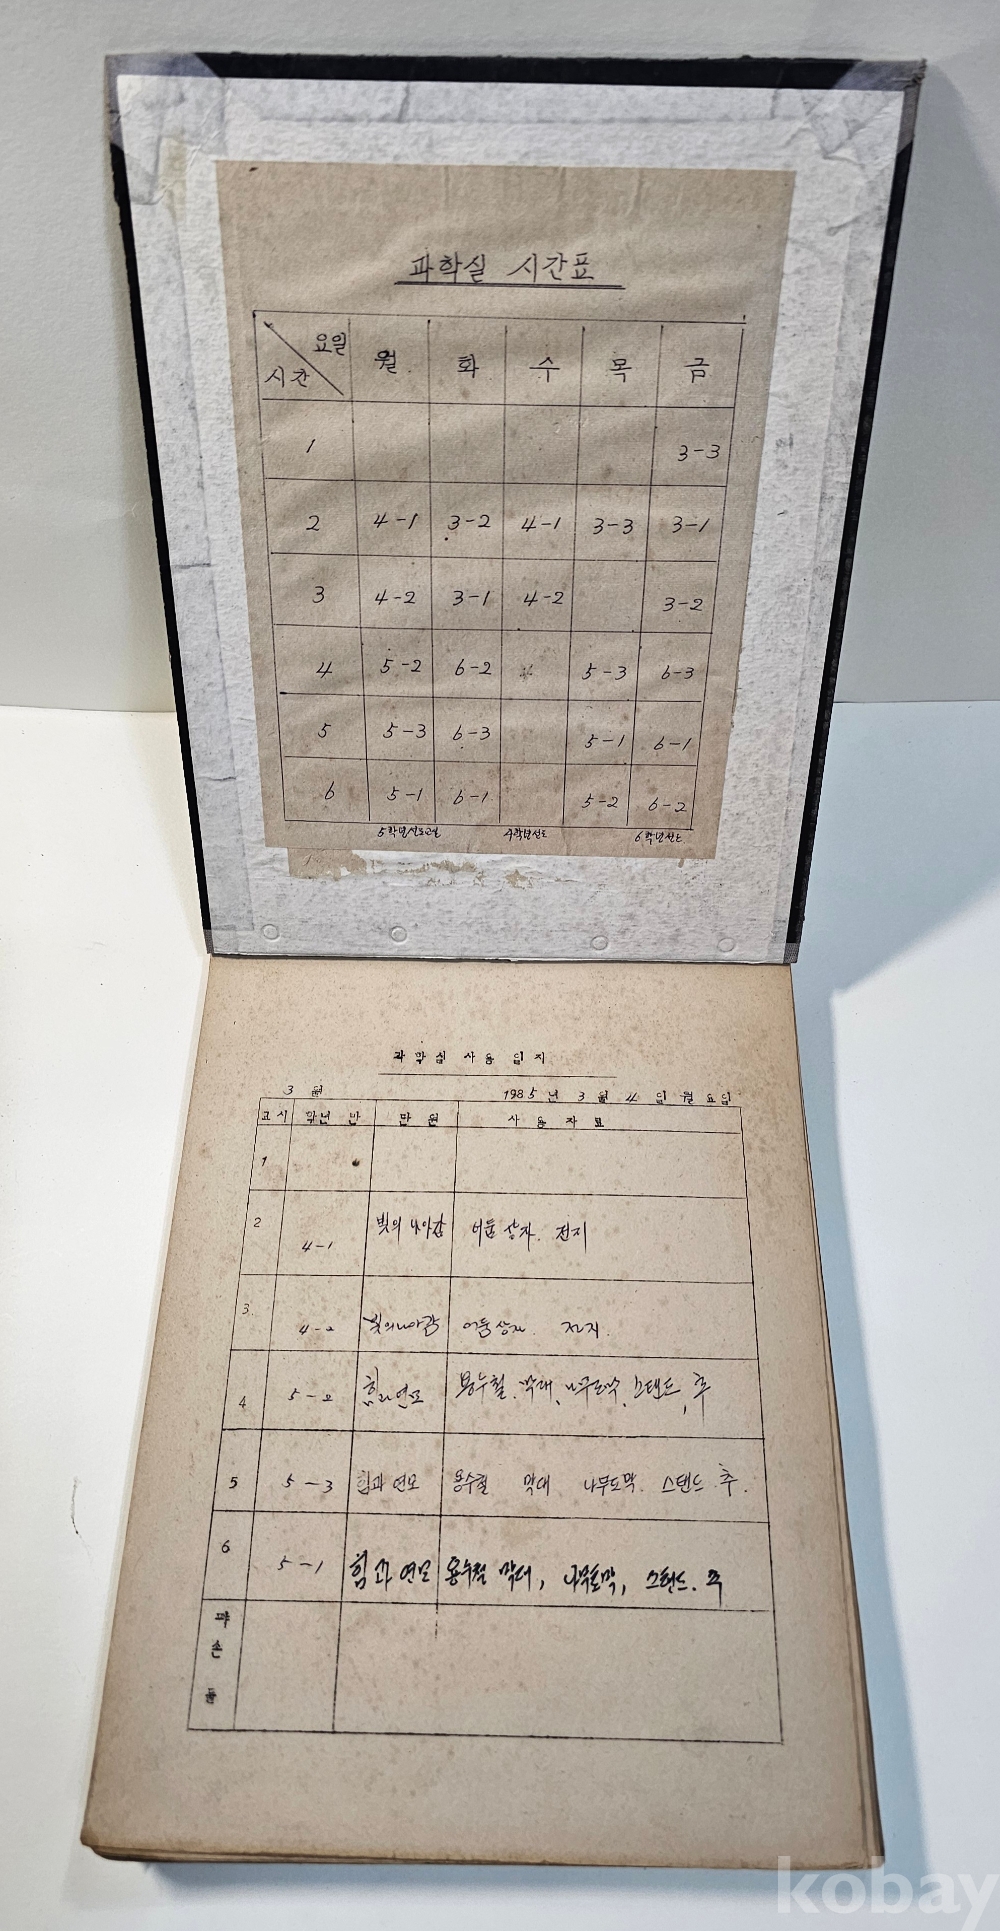 과학실 시간표
요일 월 화 수 목 금
시간
1 3-3
2 4-1 3-2 4-1 3-3 3-1
3 4-2 3-1 4-2 3-2
4 5-2 6-2 5-3 6-3
5 5-3 6-3 5-1 6-1
6 5-1 6-1 5-2 6-2
5학년선도교실 4학년선도 6학년선도
과학실 사용 일지
3 월 1985년 3월 4일 월요일
교시 학년 반 단원 사용자료
1
2 4-1 빛의 나아감 어둠상자. 전지
3. 4-2 빛의나아감 어둠상자. 전지.
4 5-2 힘과 연모 용수철, 막대, 나무도막, 스탠드, 추
5 5-3 힘과 연모 용수철 막대 나무도막. 스탠드. 추.
6 5-1 힘과 연모 용수철 막대, 나무도막, 스탠드. 추
파손
kobay